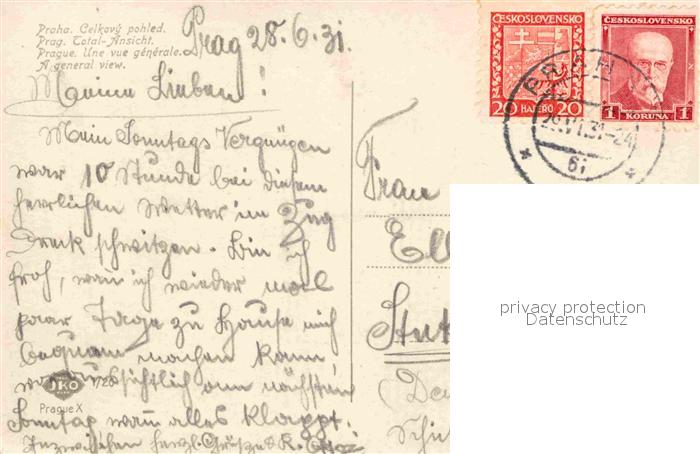 Praha. Celkový pohled.
Prag. Total-Ansicht.
Prague. Une vue générale.
A general view.
Prag 28.6.31.
Meine Lieben!
Mein Sonntags Vergnügen
war 10 Stunde bei diesem
herrlichen Wetter im Zug
Dreck schwitzen. Bin ich
froh, wenn ich wieder mal
paar Tage zu Hause mich
bequem machen kann,
voraussichtlich am nächsten
Sonntag wenn alles klappt.
Inzwischen herzl. Grüsse & K.
JKO
Prague X
ČESKOSLOVENSKO
20 HALÉŘŮ 20
ČESKOSLOVENSKO
1 KORUNA 1
PRAHA
VI.31-24
Frau
Ell
Stut
privacy protection
Datenschutz